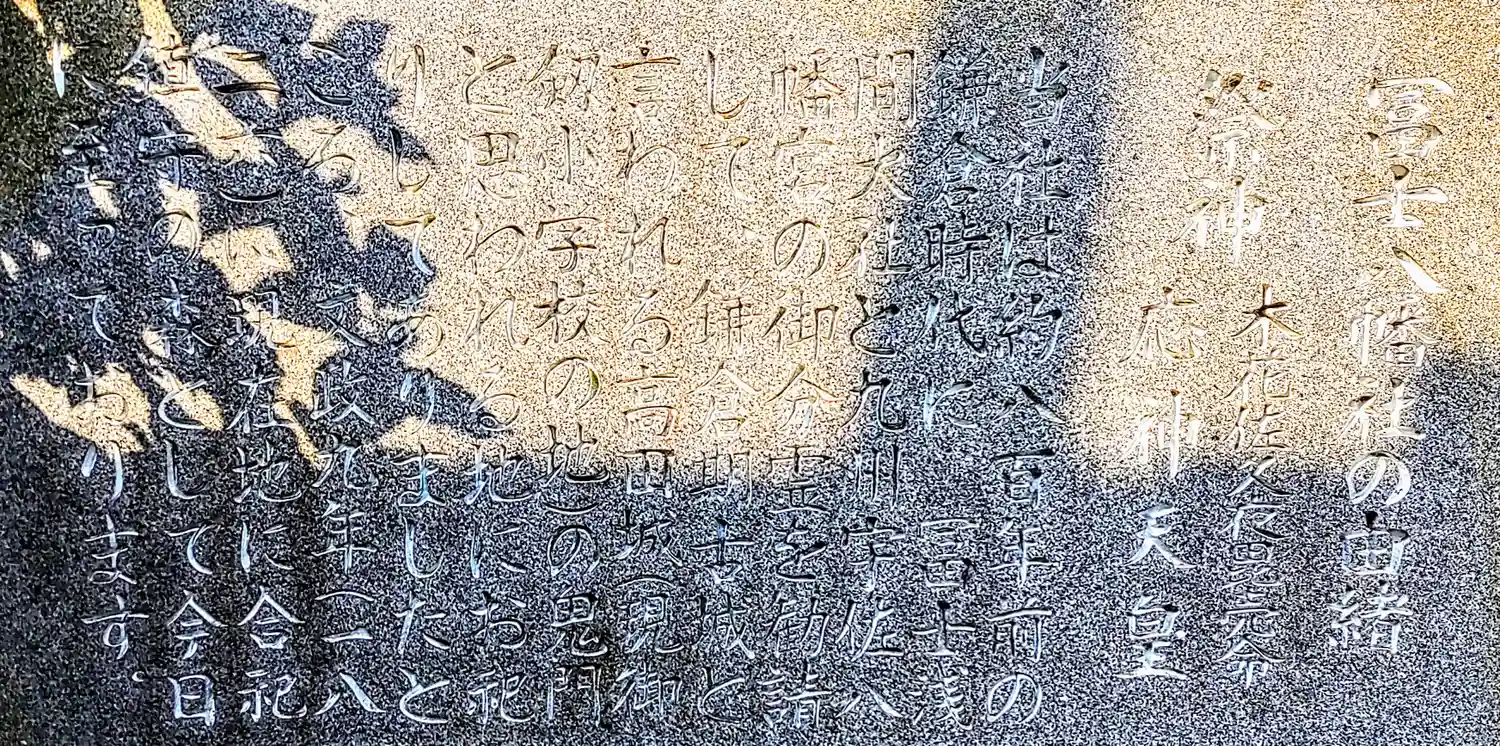 冨士八幡社の由緒
祭神
木花佐久夜毘売命
応神天皇
当社は約八百年前の
鎌倉時代に 冨士浅
間大社と九州 宇佐八
幡宮の御分霊を勧請
して、鎌倉期古城と
言われる高田城(現御
剱小学校の地)の鬼門
と思われる地にお祀
りしてありましたと
ころ 文政九年(一八
二六)に現在地に合祀
鎮守の森として今日
に至っております。